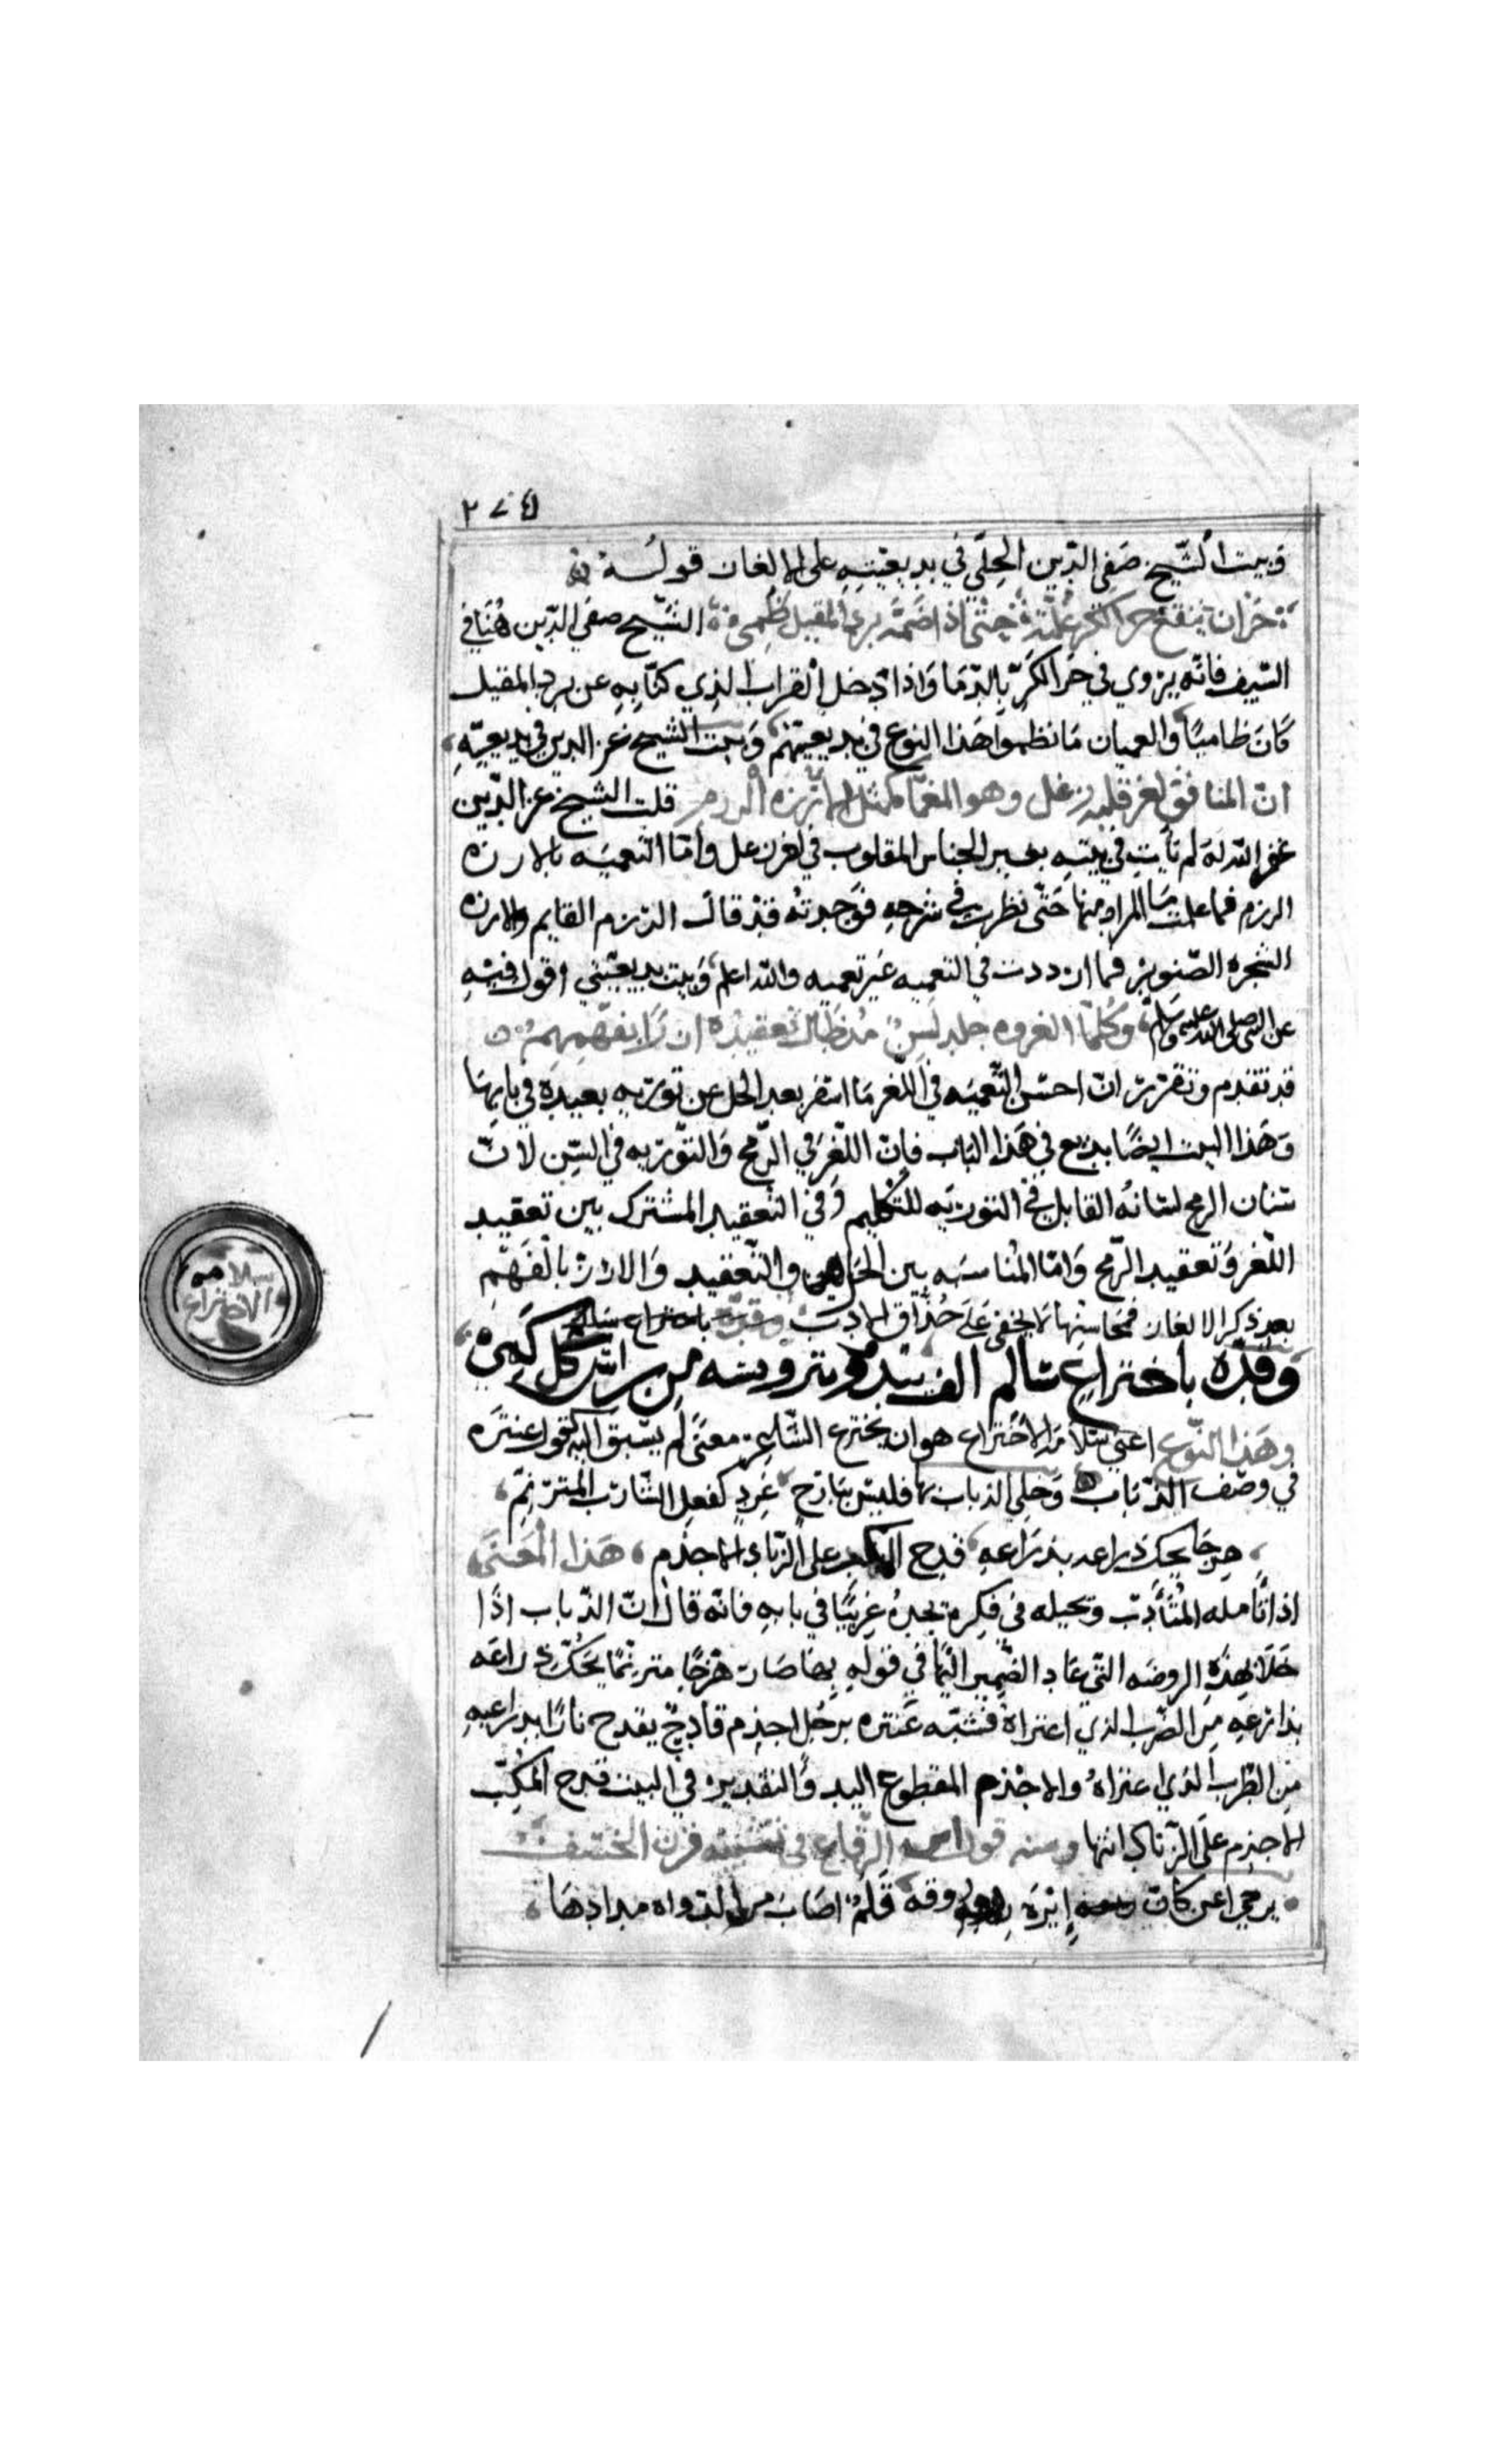 ٢٧٤
وبيت الشيخ صفي الدين الحلي في بديعيته على الالغاز قوله
حران ينقع حر الكر غلته حتى اذا ضمه برد المقيل ظمي الشيخ صفي الدين هنا في
السيف فانه يروي في حر الكر بالدما واذا دخل القراب الذي كنا به عن برد المقيل
كان ظاميا والعميان ما نظموا هذا النوع في بديعيتهم وبيت الشيخ عز الدين في بديعيته
ان المنافق لغز قلبه زغل وهو المعما كمثل الارزه الرزم قلت الشيخ عز الدين
غفر الله له لم يأت في بيته بغير الجناس المقلوب في لغز زغل واما التعميه بالارزه
الرزم فما علمت ما المراد منها حتى نظرت في شرحه فوجدته قد قال الرزم القايم والارزه
الشجره الصنوبر فما ازددت في التعميه غير تعميه والله اعلم وبيت بديعيتي اقول فيه
عن النبي صلى الله عليه وسلم وكلما الغزوه حله لسن مذ طال تعقيده ازرا بفهمهم
قد تقدم وتقرر ان احسن التعميه في اللغز ما اسفر بعد الحل عن توريه بعيده في بابها
وهذا البيت ايضا بديع في هذا الباب فان اللغز في الرمح والتوريه في اللسن لان
سنان الرمح لسانه القابل في التوريه للتكليم وفي التعقيد المشترك بين تعقيد
اللغز وتعقيد الرمح واما المناسبه بين الحل والتعقيد والازرا بالفهم
بعد ذكر الالغاز فمحاسنها لا يخفى على حذاق الادب وقده باختراع سالم
وقده باختراع سالم الف يبدو بترويسه من راس كل كمي
وهذا النوع اعني سلامة الاختراع هو ان يخترع الشاعر معنى لم يسبق اليه كقول عنتره
في وصف الذباب وخلي الذباب بها فليس ببارح غرد كفعل الشارب المترنم
هزجا يحك ذراعه بذراعه قدح المكب على الزناد الاجذم هذا المعنى
اذا تامله المتأدب وتخيله في فكره يجده غريبا في بابه فانه قال ان الذباب اذا
خلا بهذه الروضه التي عاد الضمير اليها في قوله بها صار هزجا مترنما يحك ذراعه
بذراعه من الطرب الذي اعتراه فشبهه عنتره برجل اجذم قادح يقدح نارا بذراعيه
من الطرب الذي اعتراه والاجذم المقطوع اليد والتقدير في البيت قدح المكب
الاجذم على الزناد انتها ومنه قول ابن الرقاع في تشبيه قرن الخشف
يزجي اغن كان ابرة روقه قلم اصاب من الدواه مدادها
سلامه
الاختراع